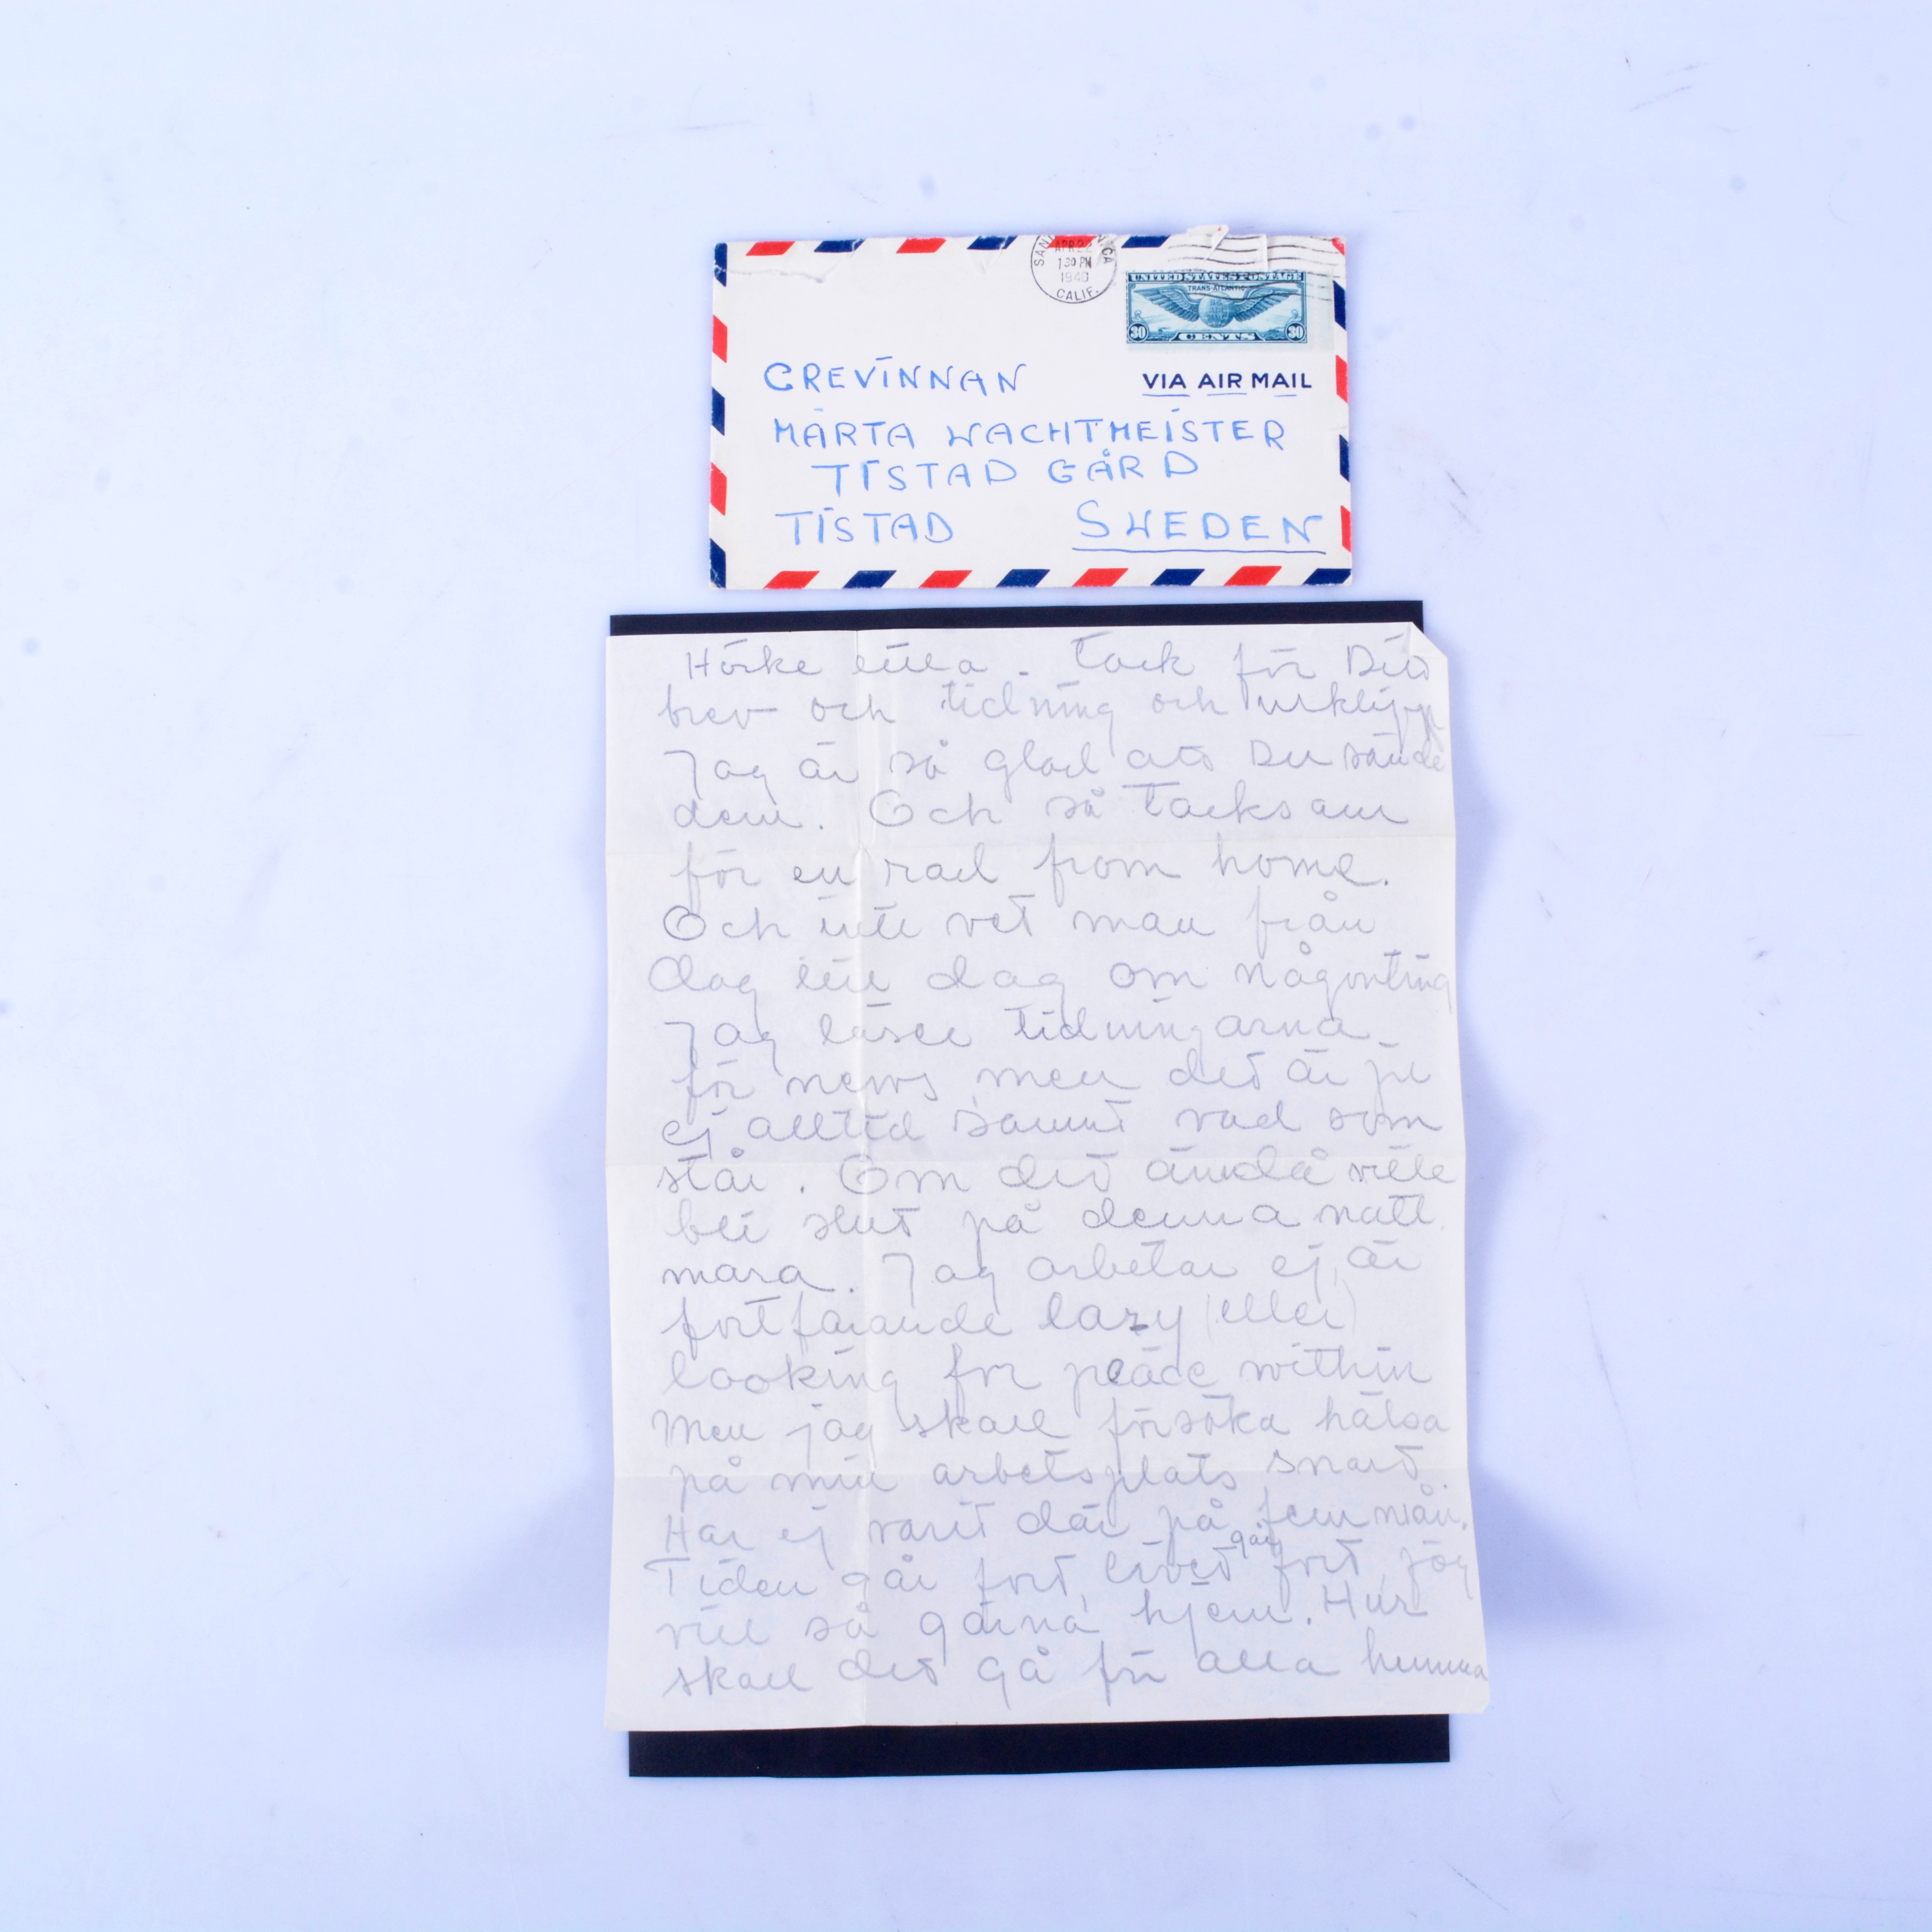 APR 22
1 30 PM
1940
CALIF.
UNITED STATES POSTAGE
TRANS-ATLANTIC
30 CENTS 30
VIA AIR MAIL
GREVINNAN
MÄRTA WACHTMEISTER
TISTAD GÅRD
TISTAD SWEDEN
Hörke lilla. Tack för Ditt
brev och tidning och urklipp
Jag är så glad att Du sände
dem. Och så tacksam
för en rad from home.
Och inte vet man från
dag till dag om någonting
Jag läser tidningarna
för news men det är ju
ej alltid sannt vad som
står. Om det ändå ville
bli slut på denna natt
mara. Jag arbetar ej, är
fortfarande lazy (eller)
looking for peace within
Men jag skall försöka hälsa
på min arbetsplats snart.
Har ej varit där på fem mån.
Tiden går fort, livet går fort, jag
vill så gärna hjem. Hur
skall det gå för alla humma